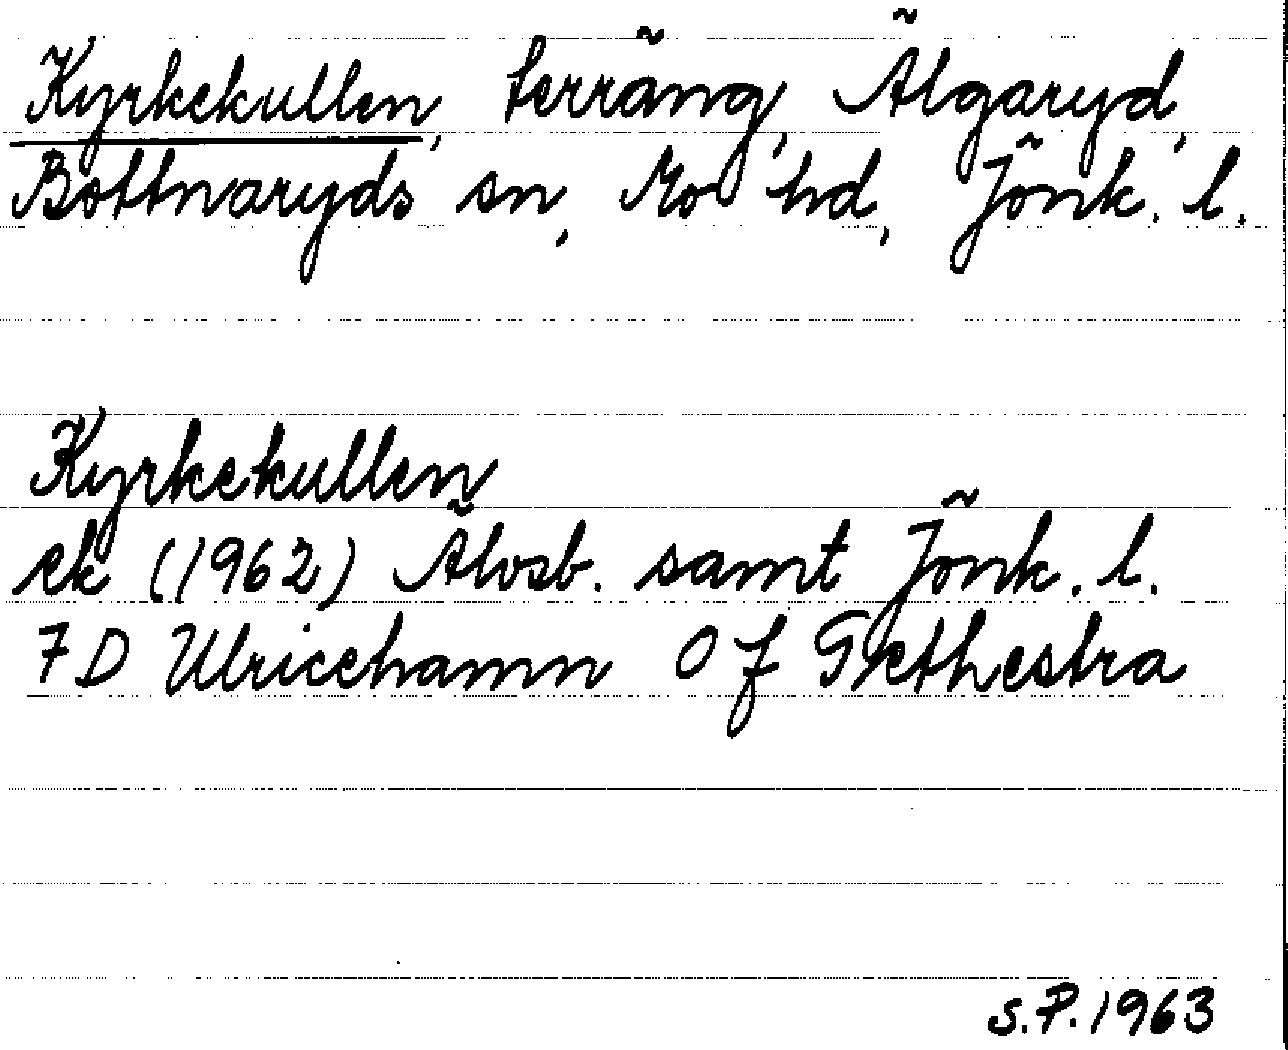 Kyrkekullen, terräng, Älgaryd,
Bottnaryds sn, Mo hd, Jönk. l.
Kyrkekullen
ek (1962) Älvsb. samt Jönk. l.
7 D Ulricehamn 0 f Grethestra
s.P. 1963